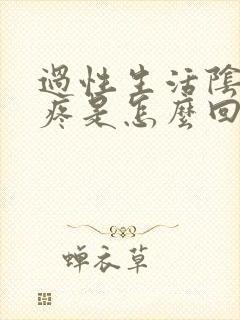 過性生活陰
疼是怎麼回
蟬衣草